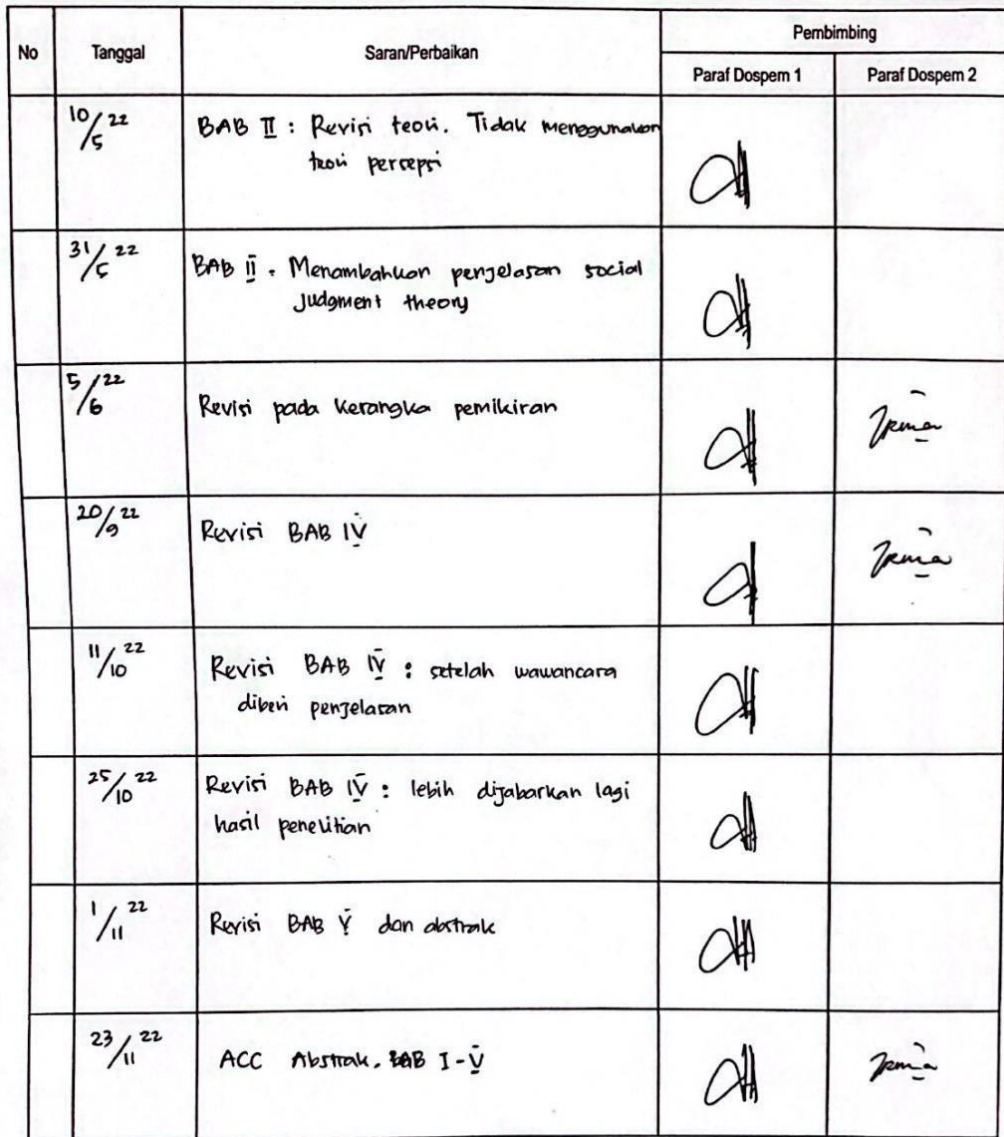 No Tanggal Saran/Perbaikan Pembimbing
Paraf Dospem 1 Paraf Dospem 2
10/5 22 BAB II : Revisi teori. Tidak menggunakan
teori persepsi
31/5 22 BAB II. Menambahkan penjelasan social
judgment theory
5/6 22 Revisi pada kerangka pemikiran
20/9 22 Revisi BAB IV
11/10 22 Revisi BAB IV : setelah wawancara
diberi penjelasan
25/10 22 Revisi BAB IV : lebih dijabarkan lagi
hasil penelitian
1/11 22 Revisi BAB V dan abstrak
23/11 22 ACC Abstrak. BAB I - V